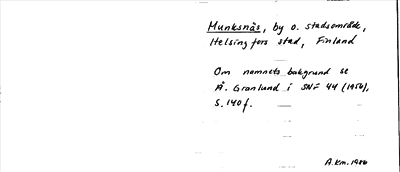 Munksnäs, by o. stadsområde,
Helsingfors stad, Finland
Om namnets bakgrund se
Å. Granlund i SNF 44 (1956),
S. 140 f.
A.Km. 1986